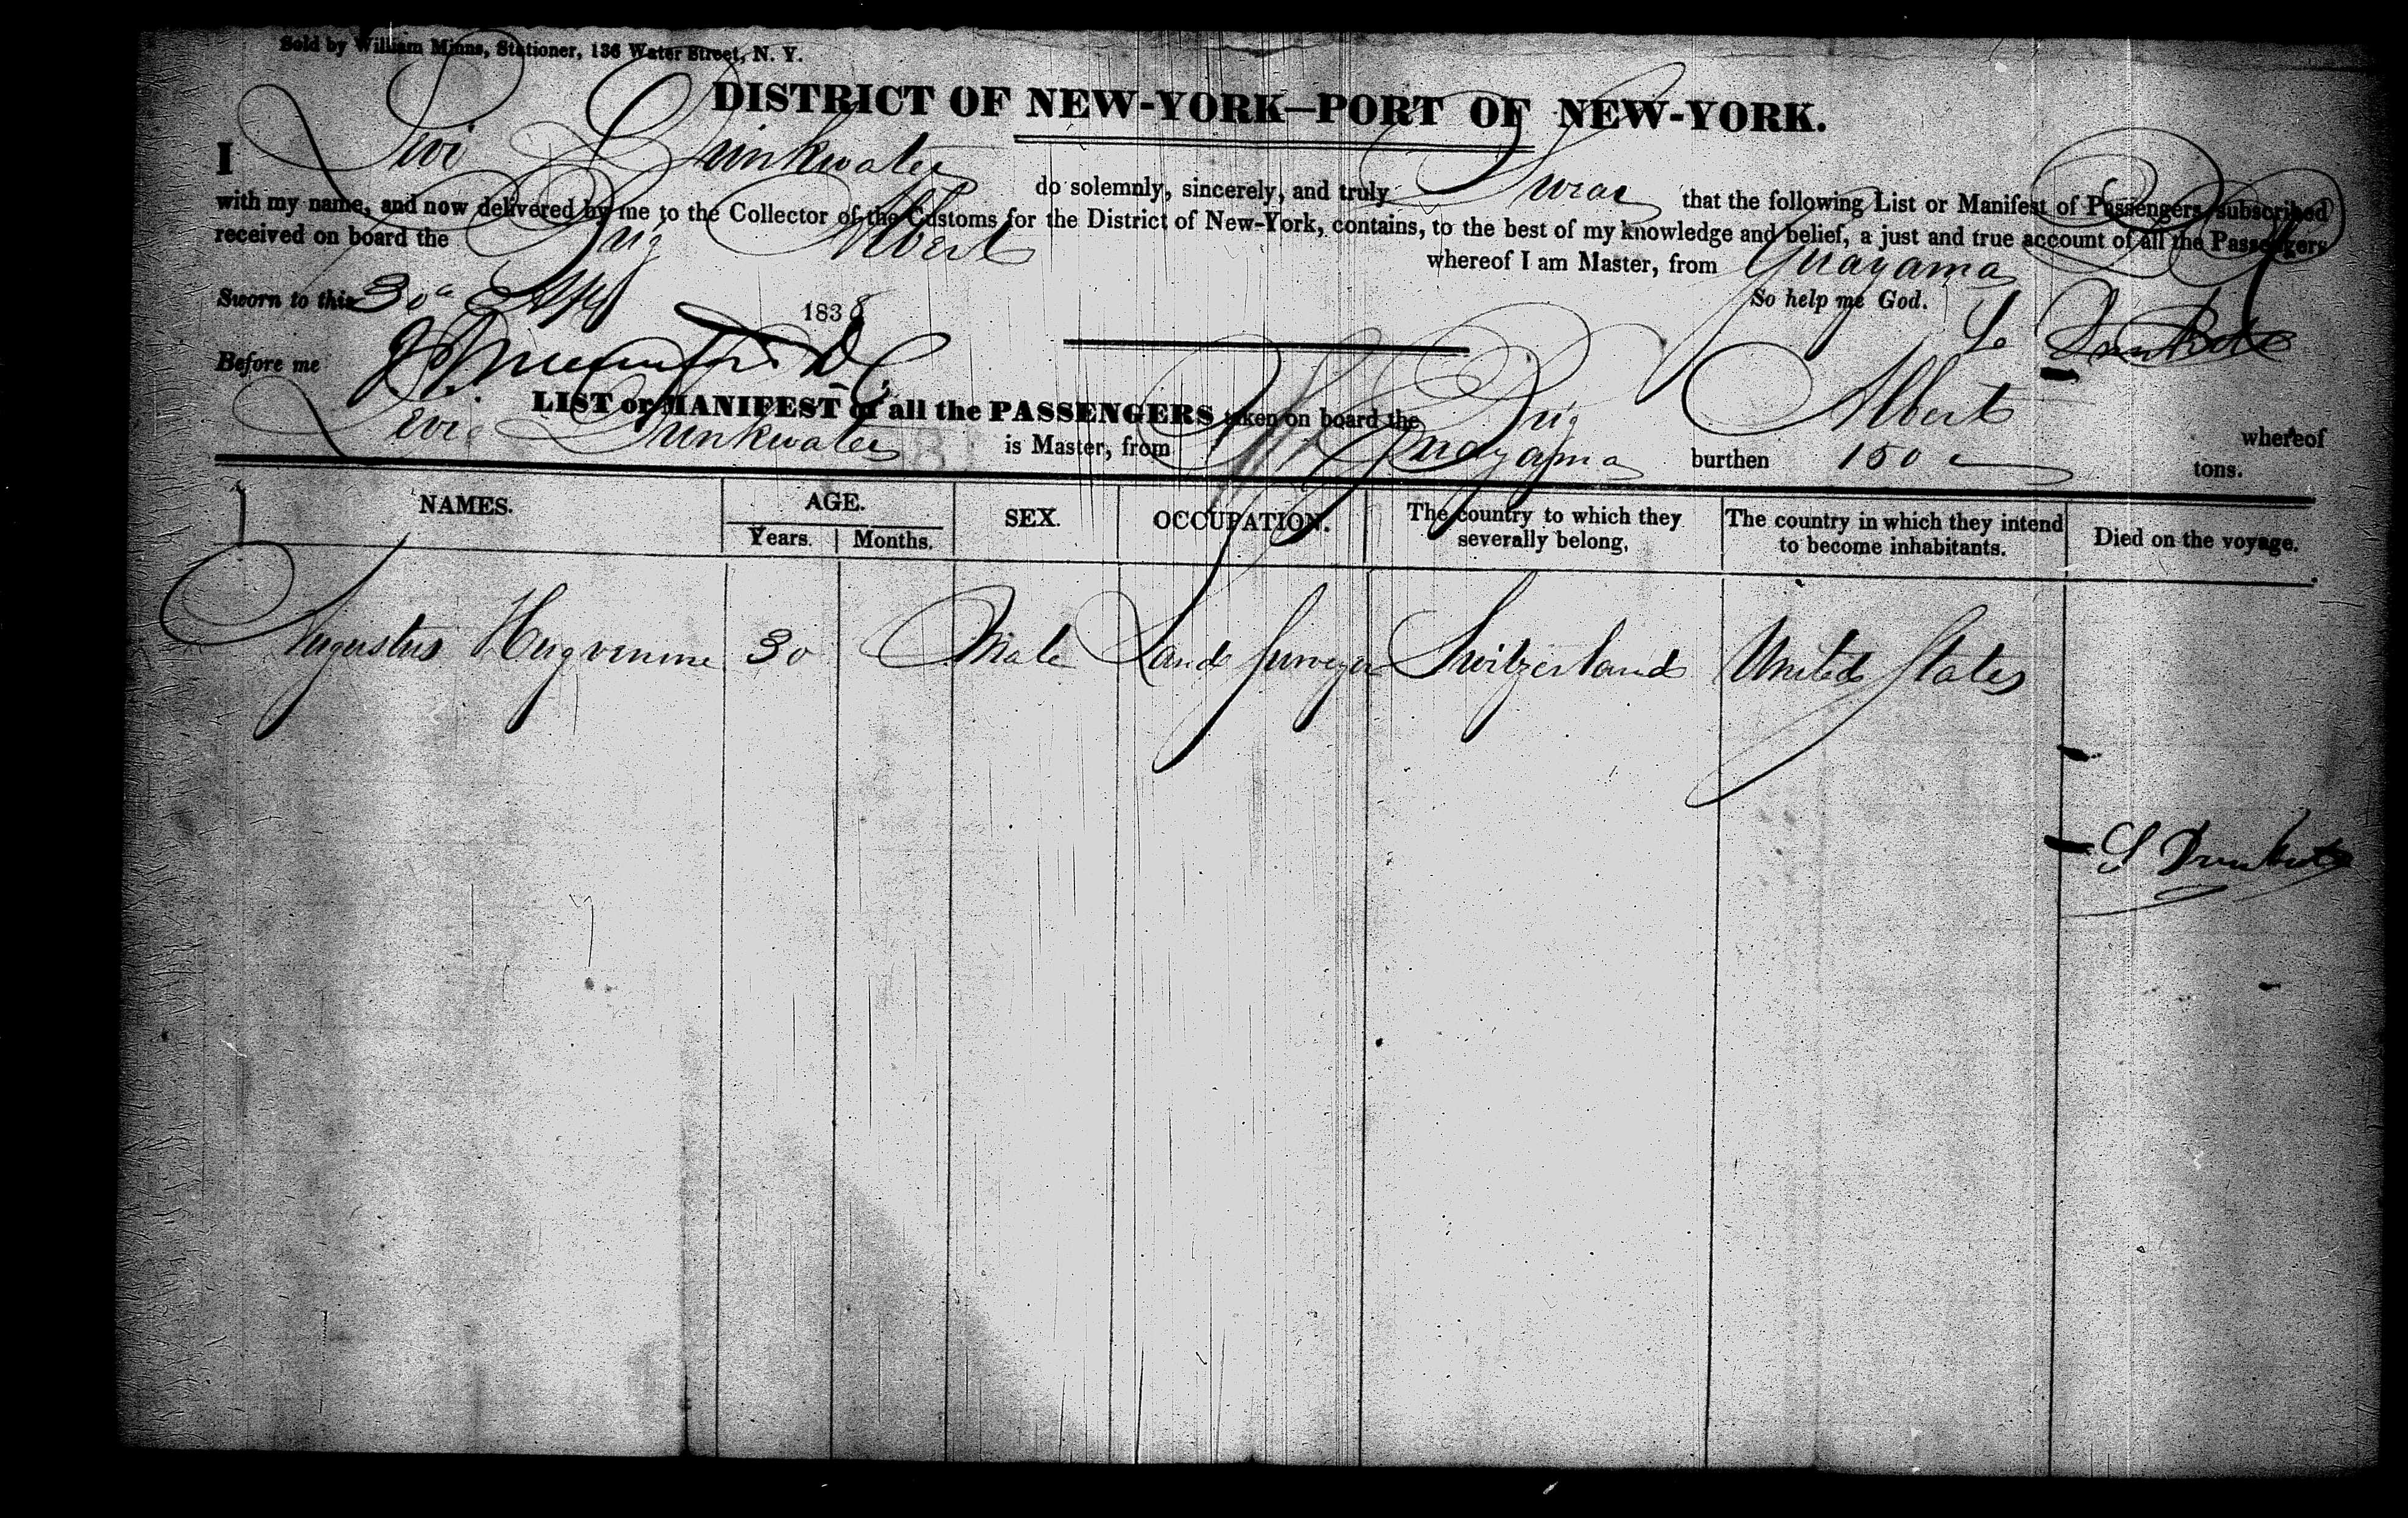 Sold by William Minns, Stationer, 136 Water Street, N. Y.
DISTRICT OF NEW-YORK—PORT OF NEW-YORK.
I Levi Drinkwater do solemnly, sincerely, and truly Swear that the following List or Manifest of Passengers, subscribed
with my name, and now delivered by me to the Collector of the Customs for the District of New-York, contains, to the best of my knowledge and belief, a just and true account of all the Passengers
received on board the Brig Albert whereof I am Master, from Guayama
Sworn to this 30 1838 So help me God.
Before me
LIST or MANIFEST of all the PASSENGERS taken on board the Brig Albert whereof
Levi Drinkwater is Master, from Guayama burthen 150 tons.
NAMES. AGE. Years. Months. SEX. OCCUPATION. The country to which they severally belong. The country in which they intend to become inhabitants. Died on the voyage.
Augustus 30 Male Land Surveyor Switzerland United States
L Drinkwater